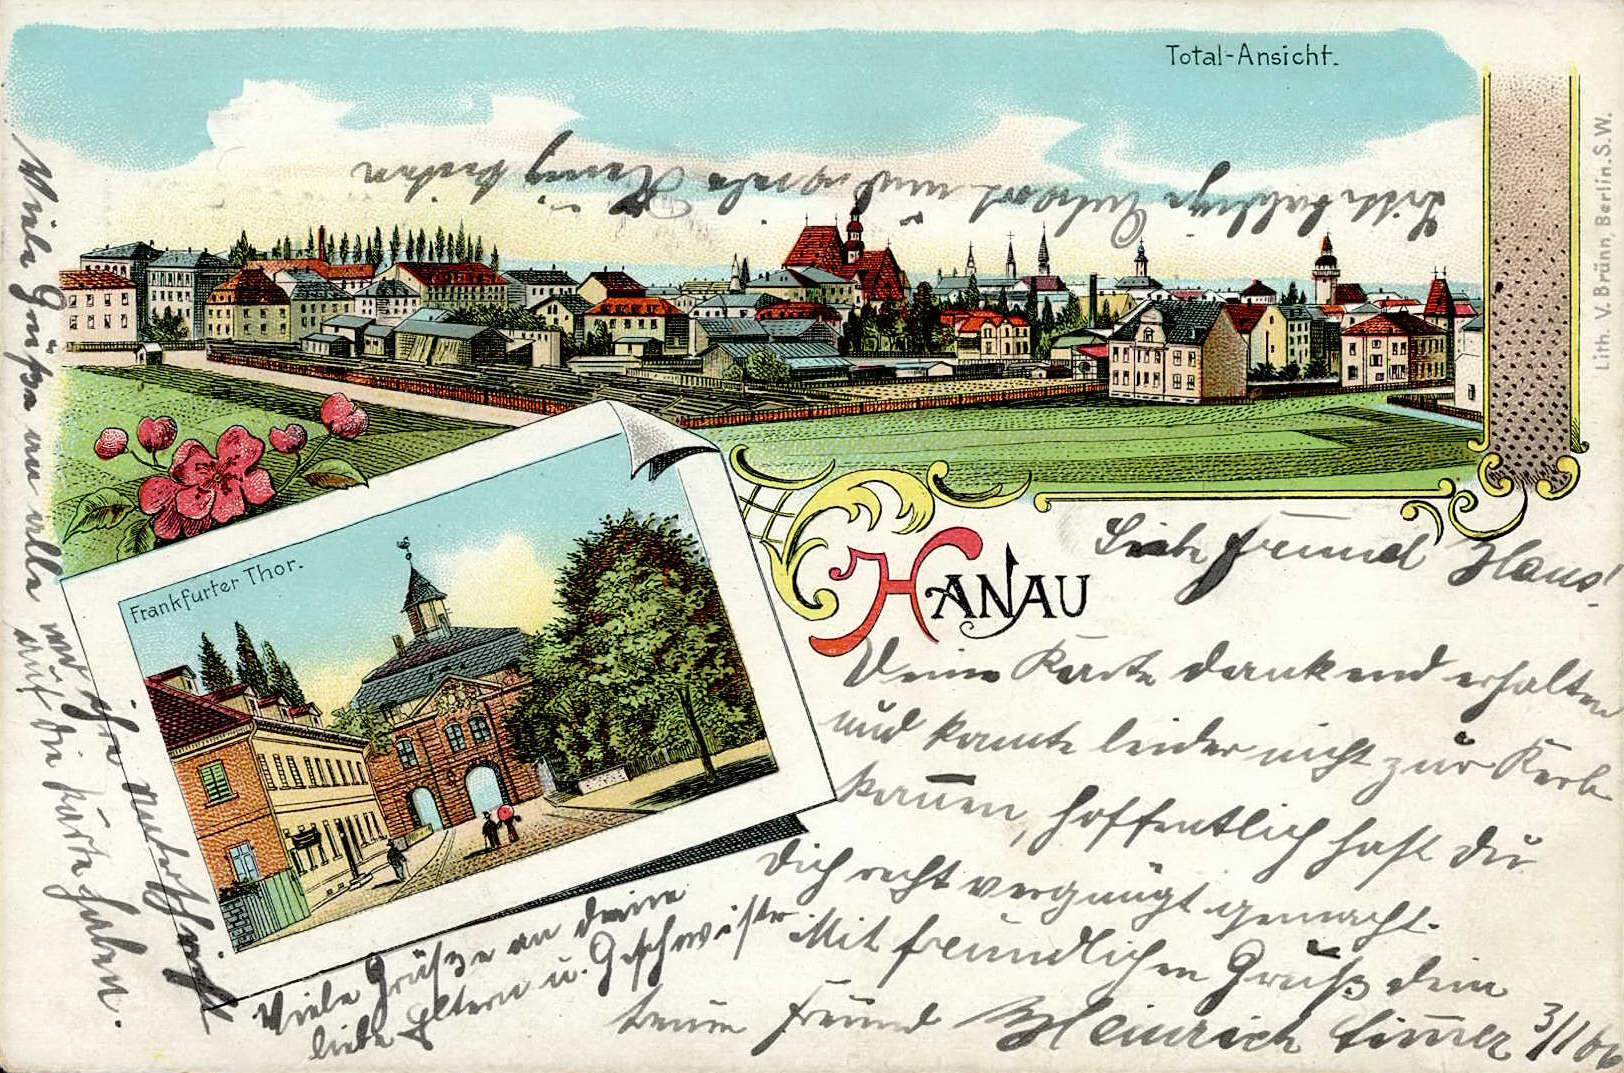 Total-Ansicht.
Lith. V. Brünn, Berlin. S.W.
Frankfurter Thor.
HANAU
Liebe freund Hans!
Deine Karte dankend erhalten
und konnte leider nicht zur Kerb
kommen, hoffentlich hast du
dich recht vergnügt gemacht.
Mit freundlichen Gruß dein
treuer Freund Heinrich 3/1 06
Viele Grüße an deine
liebe Eltern u. Geschwister
Viele Grüße an alle wo ihre Unterschrift
auf die Karte haben.
Bitte baldige Antwort und